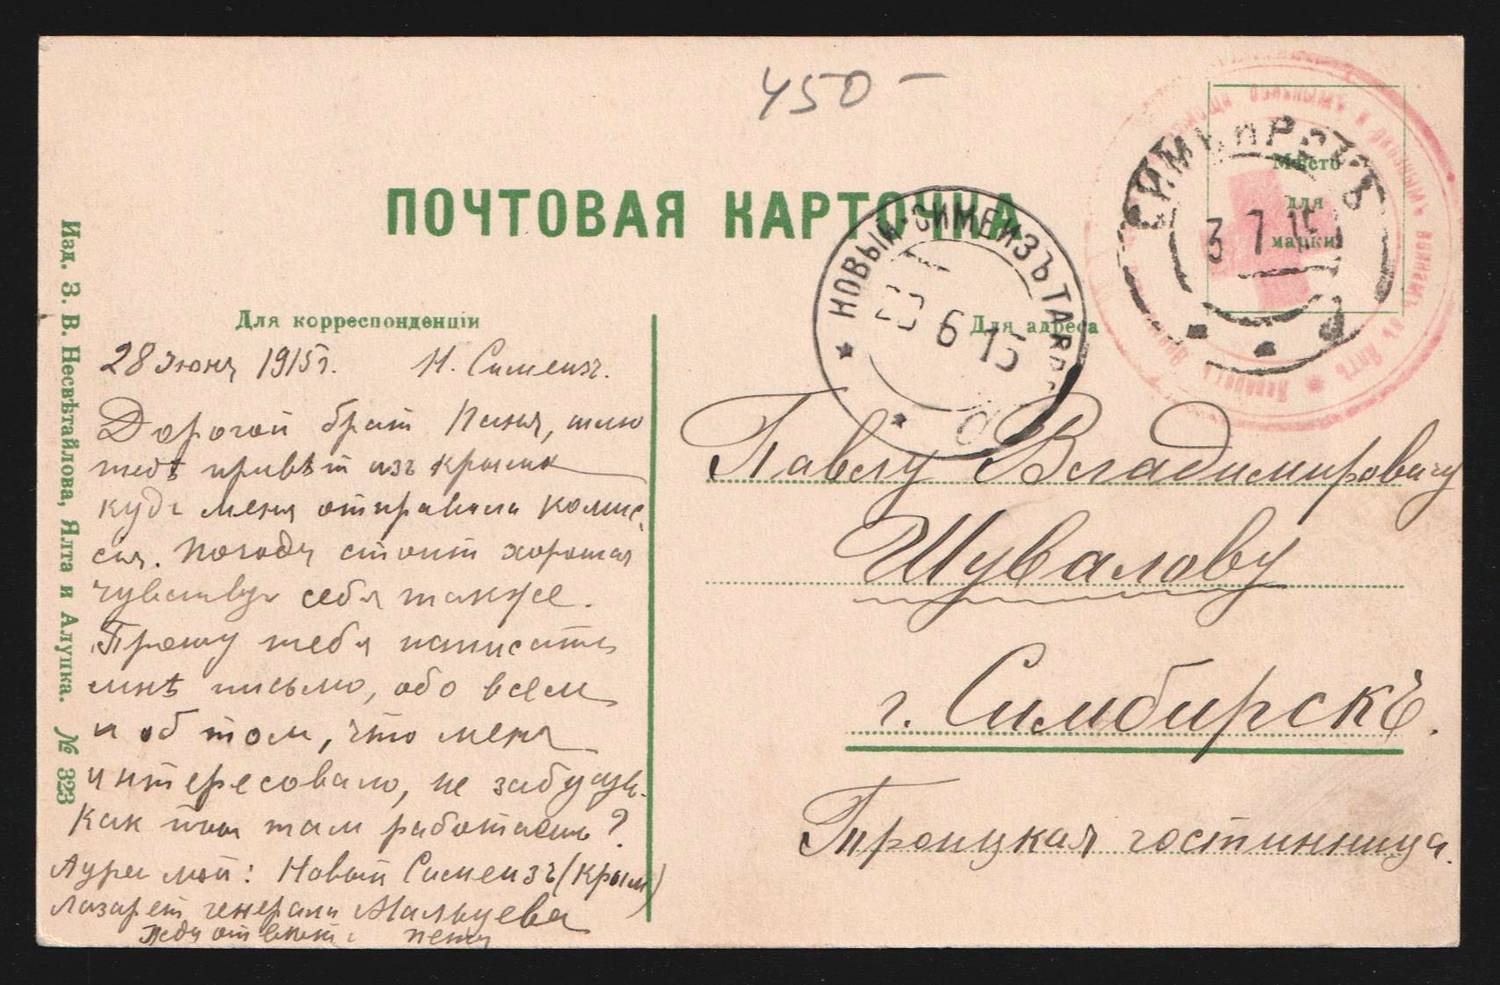 450 -
ПОЧТОВАЯ КАРТОЧКА
Мѣсто
для
марки
СИМБИРСКЪ
3 7 15
НОВЫЙ-СИМЕИЗЪ ТАВР.
6 15
Изд. З. В. Несвѣтайлова, Ялта и Алупка. № 323
Для корреспонденціи
28 Июня 1915 г. Н. Симеизъ.
Дорогой брат Паня, шлю
тебѣ привѣт изъ Крыма
куда меня отправила комис-
сия. Погода стоит хорошая
чувствую себя также.
Прошу тебя написать
мнѣ письмо, обо всем
и об том, что меня
интересовало, не забудь.
Как там работаешь?
Адрес мой: Новый Симеизъ (Крым)
Лазарет генерала Мальцева
Жду ответа
Для адреса
Павлу Владимировичу
Шувалову
г. Симбирскъ.
Троицкая гостинница.